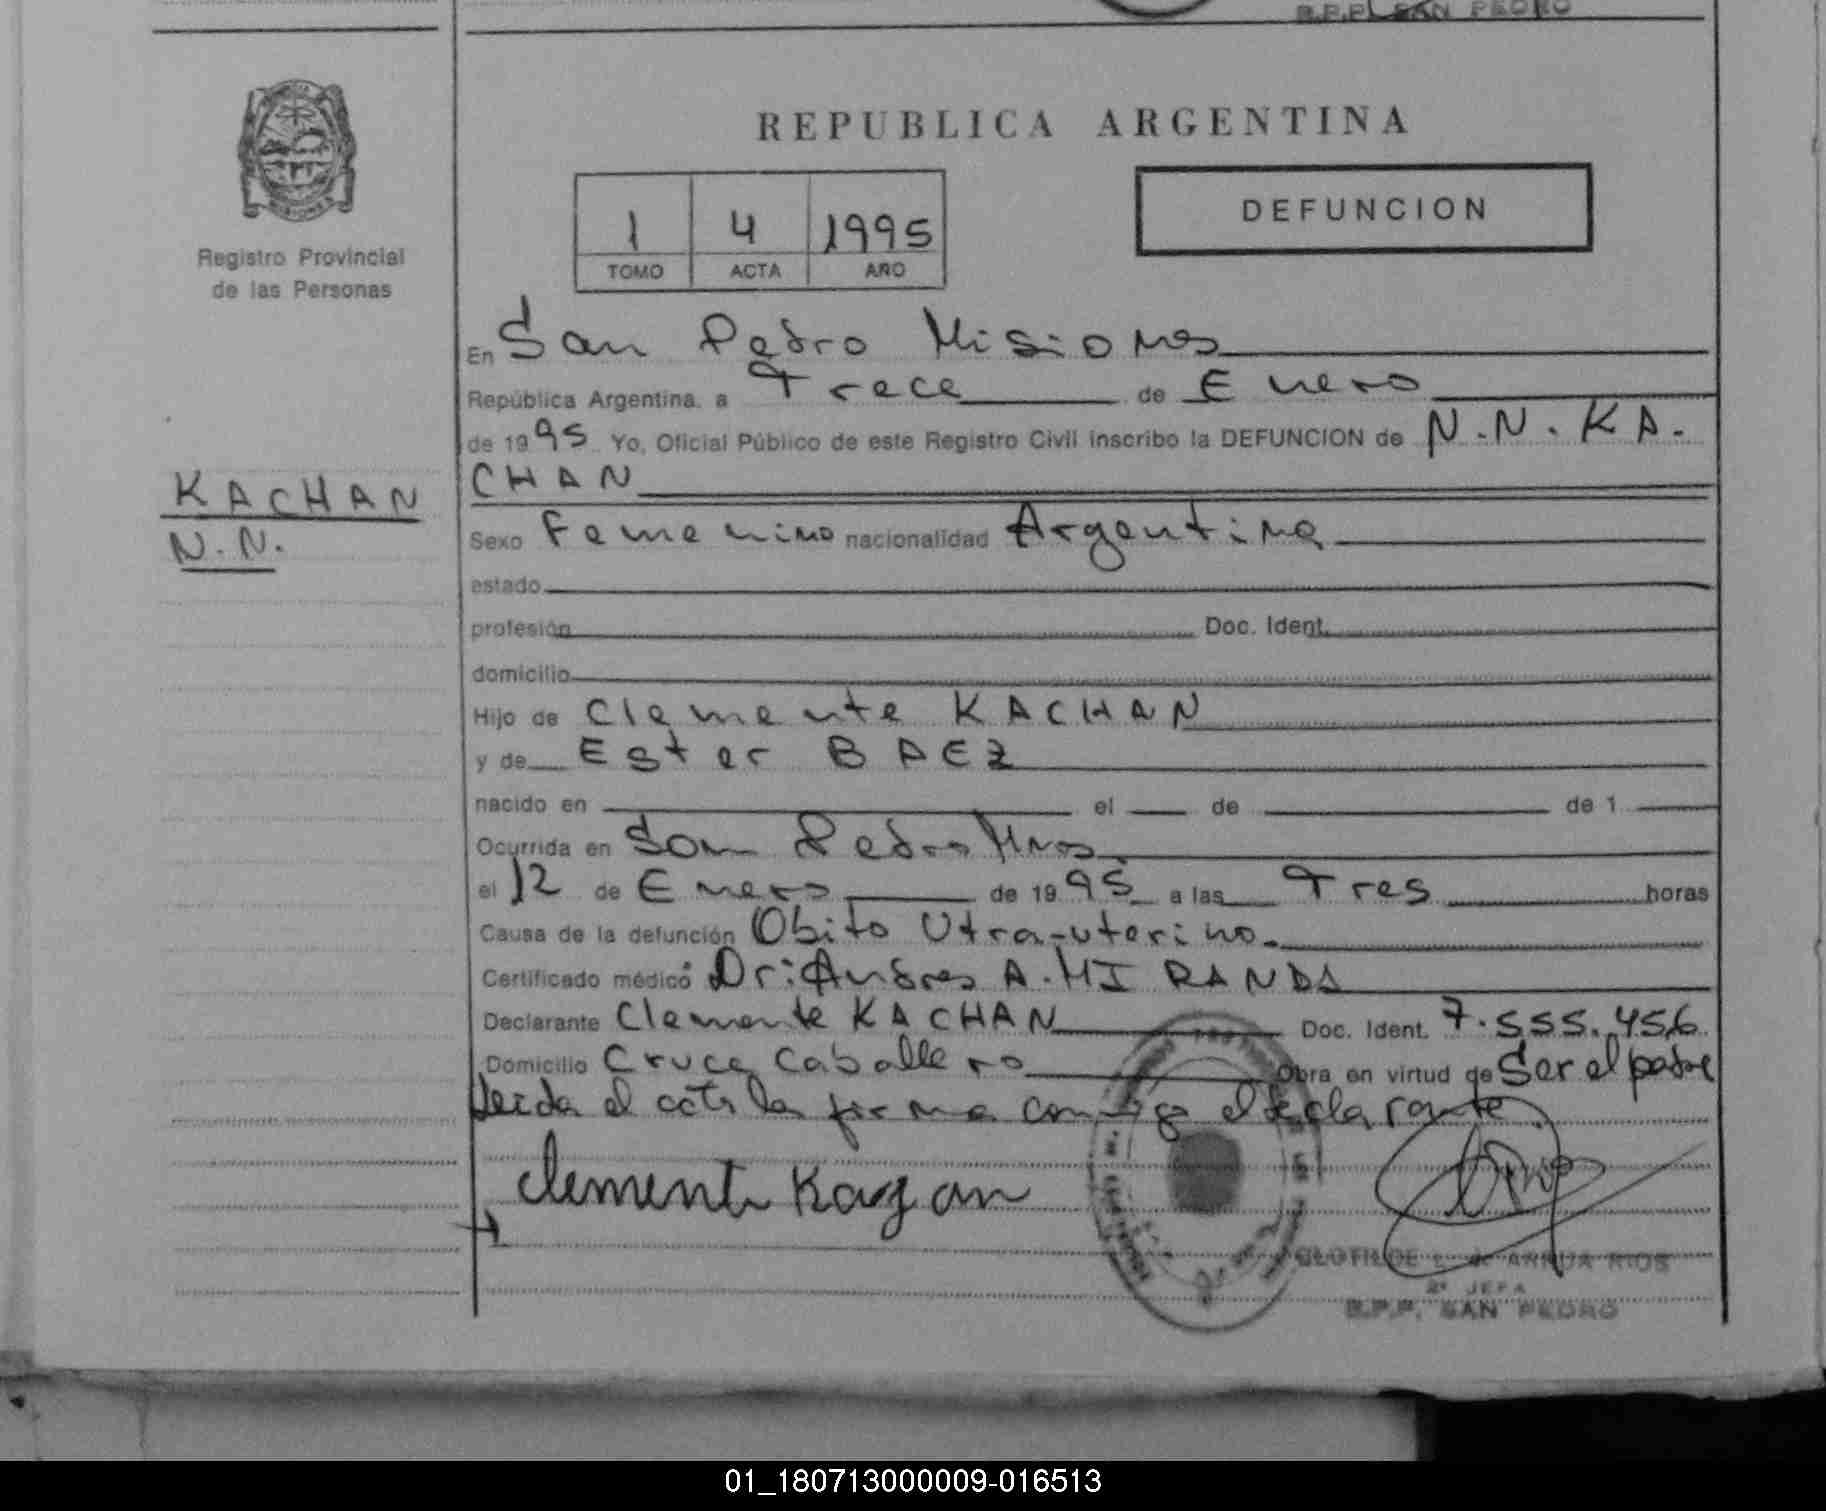 B.P.P. SAN PEDRO
REPUBLICA ARGENTINA
MISIONES
Registro Provincial
de las Personas
1 4 1995
TOMO ACTA AÑO
DEFUNCION
En San Pedro Misiones
República Argentina, a Trece de Enero
de 1995 Yo, Oficial Público de este Registro Civil inscribo la DEFUNCION de N.N. KA-
CHAN
KACHAN
N.N.
Sexo Femenino nacionalidad Argentina
estado
profesión Doc. Ident.
domicilio
Hijo de Clemente KACHAN
y de Ester BAEZ
nacido en el de de 1
Ocurrida en San Pedro Mnes
el 12 de Enero de 1995 a las Tres horas
Causa de la defunción Obito Utra-uterino.
Certificado médico Dr: Andres A. MIRANDA
Declarante Clemente KACHAN Doc. Ident. 7.555.456
Domicilio Cruce Caballero Obra en virtud de Ser el padre
Leida el acta la firma conmigo el declarante
Clemente Kaxan
CLOTILDE L. de ARRUA RIOS
2ª JEFA
B.P.P. SAN PEDRO
01_180713000009-016513